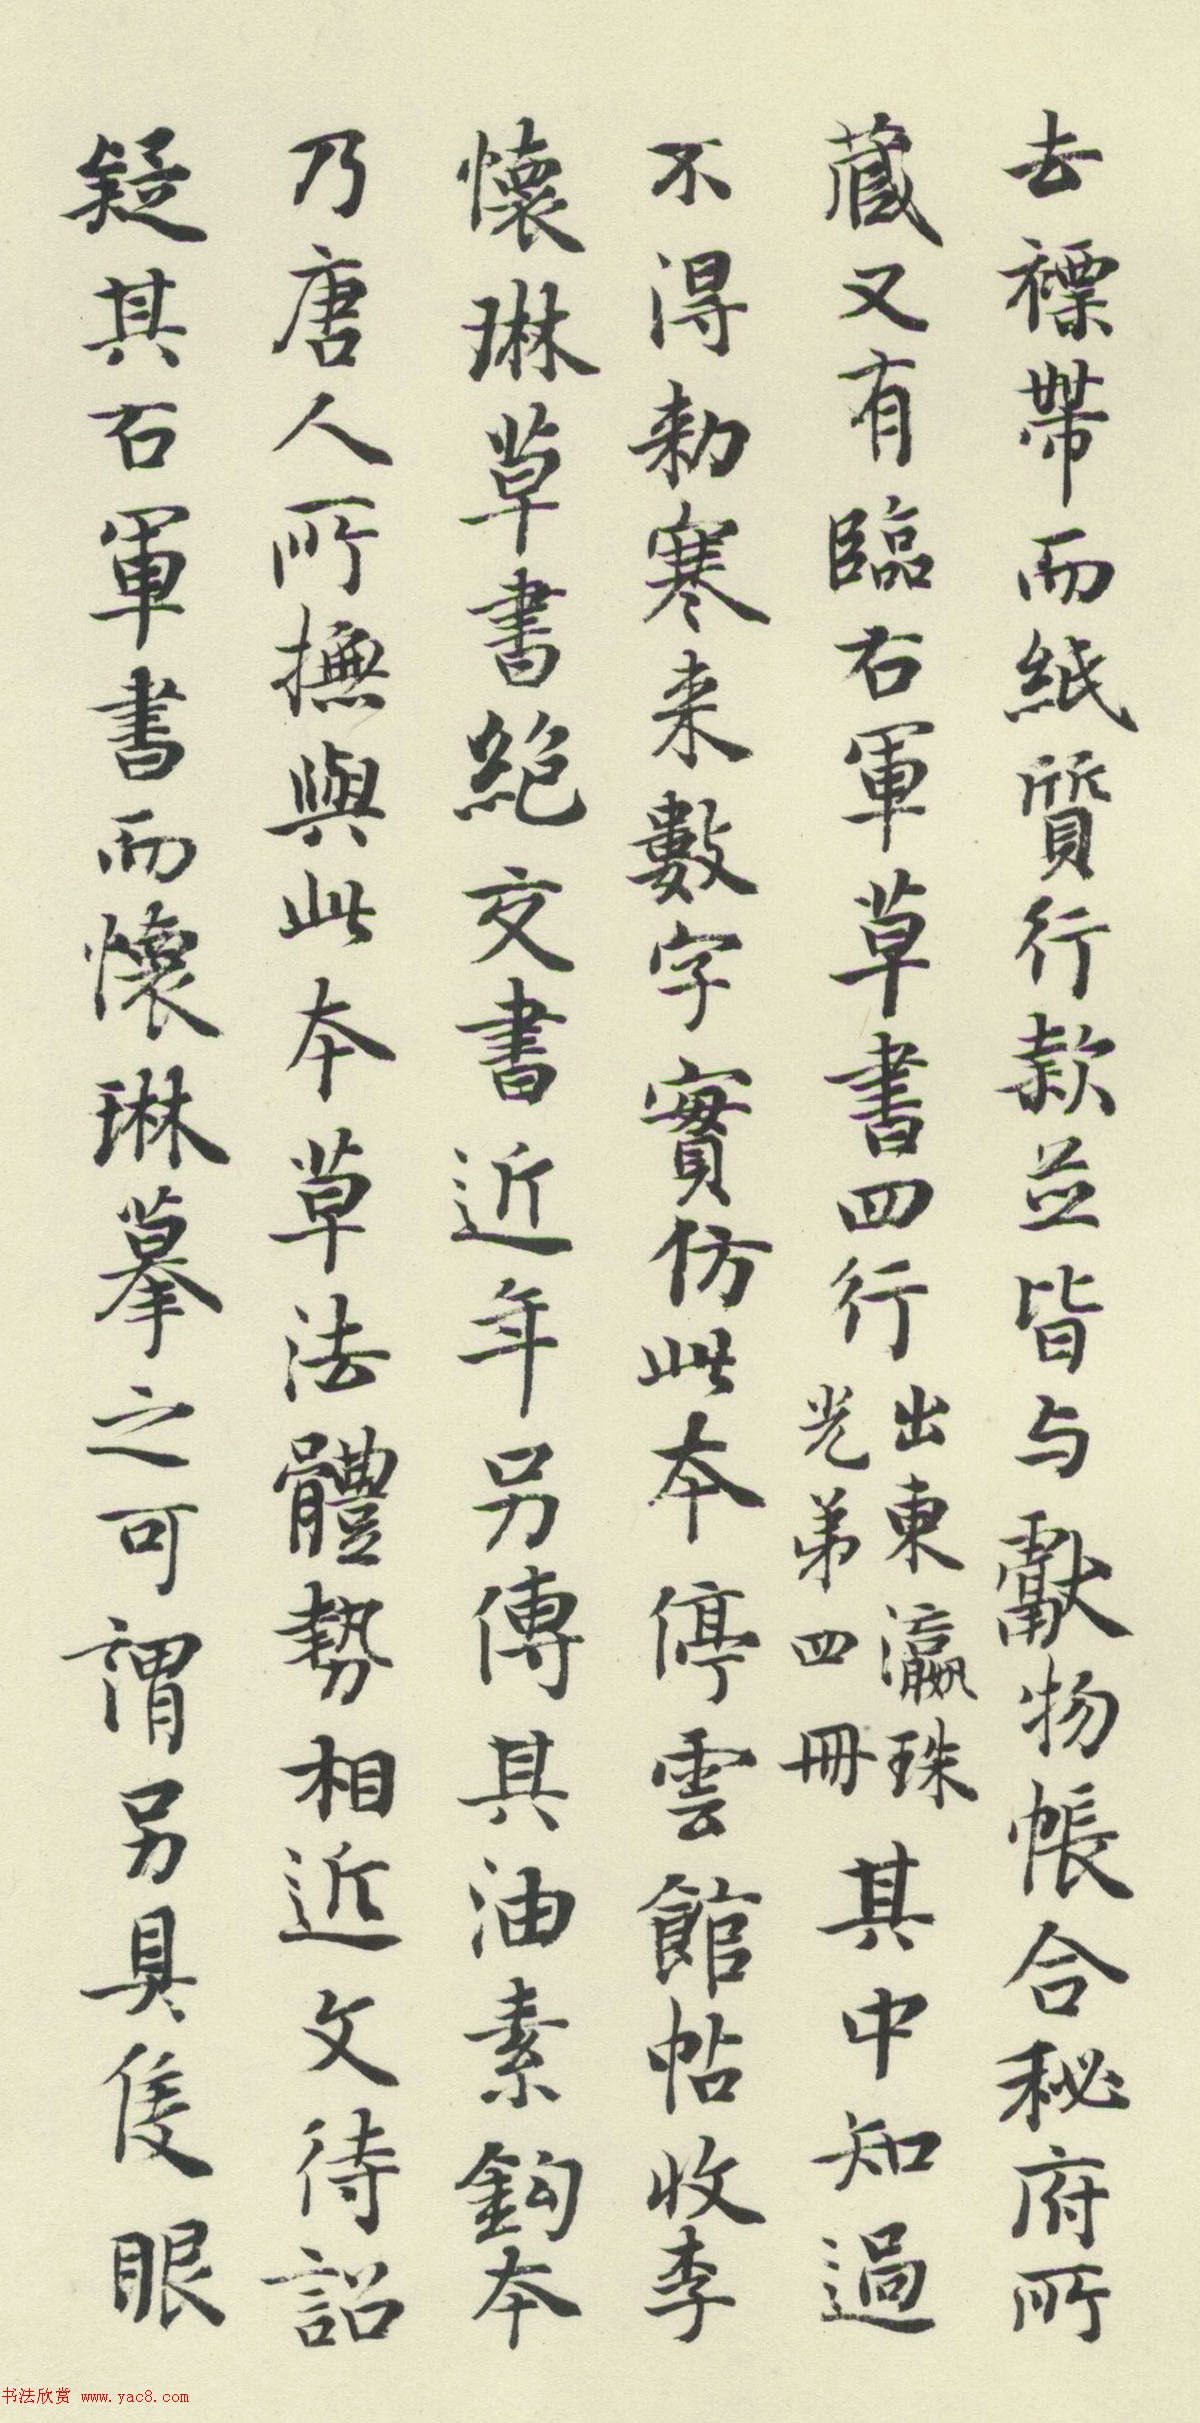 去褾帶而紙質行款並皆与獻物帳合秘府所
蔵又有臨右軍草書四行出東瀛珠光弟四冊其中知過
不得勑寒来數字實仿此本停雲館帖收李
懷琳草書絕交書近年另傳其油素鈎本
乃唐人所撫與此本草法體勢相近文待詔
疑其右軍書而懷琳摹之可謂另具隻眼
书法欣赏 www.yac8.com